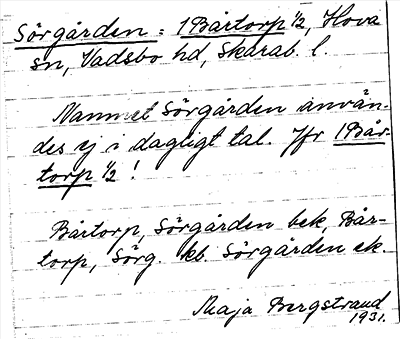 Sörgården : 1 Bårtorp ½, Hova
sn, Vadsbo hd, Skarab. l.
Namnet Sörgården använ-
des ej i dagligt tal. Jfr 1 Bår-
torp ½ !
Bårtorp, Sörgården bek, Bår-
torp, Sörg. kb. Sörgården ek.
Maja Bergstrand
1931.